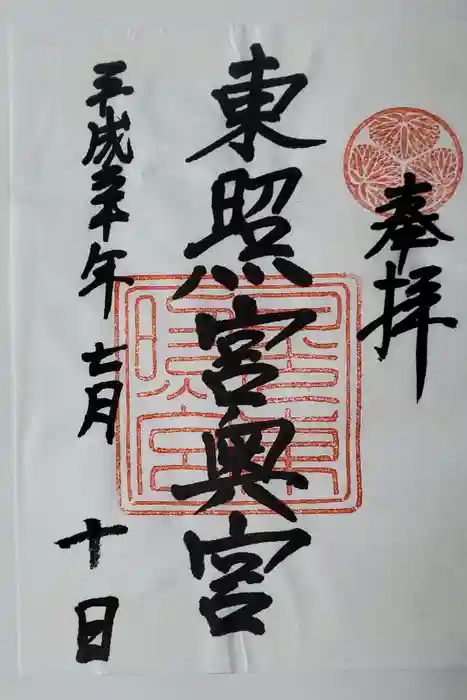 奉拝
東照宮奥宮
平成三十年七月十日